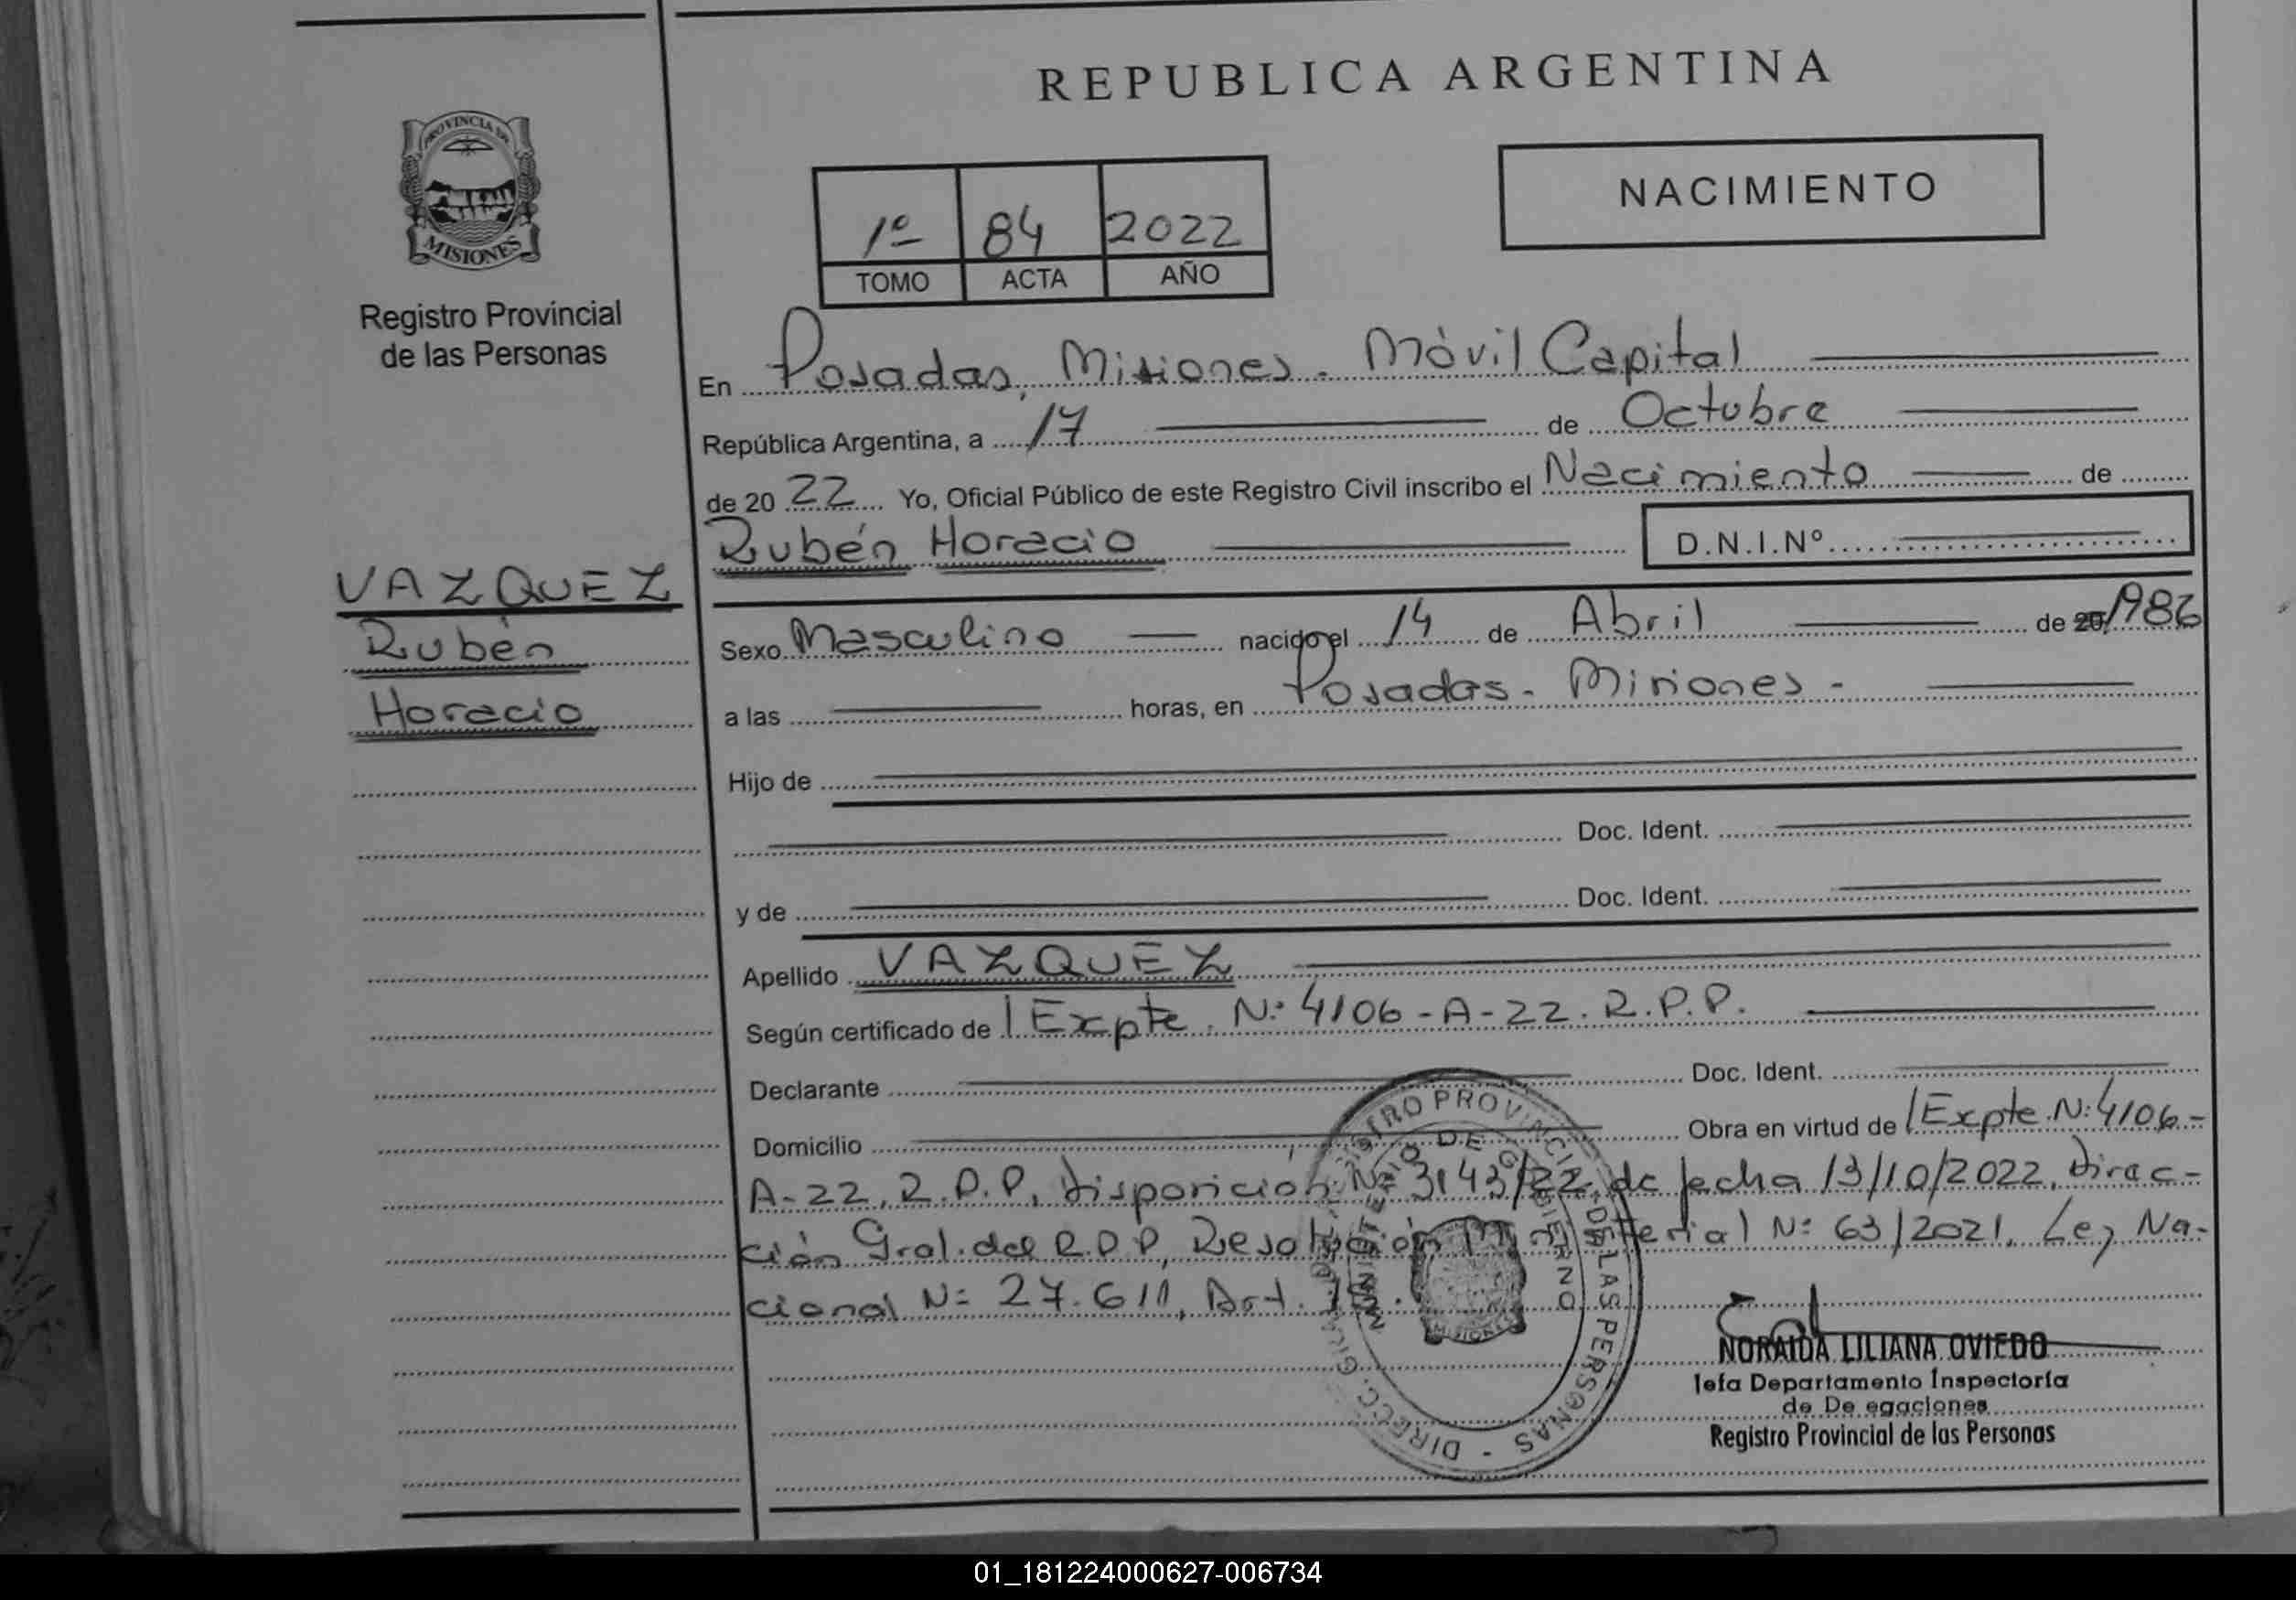 REPUBLICA ARGENTINA
PROVINCIA DE
MISIONES
Registro Provincial
de las Personas
NACIMIENTO
1º 84 2022
TOMO ACTA AÑO
En Posadas, Misiones. Móvil Capital
República Argentina, a 17 de Octubre
de 20 22 Yo, Oficial Público de este Registro Civil inscribo el Nacimiento de
Rubén Horacio D.N.I.Nº
VAZQUEZ
Rubén
Horacio
Sexo Masculino nacido el 14 de Abril de 20 1986
a las horas, en Posadas - Misiones -
Hijo de
Doc. Ident.
y de Doc. Ident.
Apellido VAZQUEZ
Según certificado de Expte. Nº 4106-A-22. R.P.P.
Declarante Doc. Ident.
Domicilio Obra en virtud de Expte. Nº 4106-
A-22, R.P.P, Disposición Nº 3143/22 de fecha 13/10/2022, Direc-
ción Gral. del R.P.P, Resolución Ministerial Nº 63/2021, Ley Na-
cional Nº 27.611, Art.
DIRECC. GRAL. REGISTRO PROVINCIAL DE LAS PERSONAS -
MINISTERIO DE GOBIERNO
MISIONES
NORAIDA LILIANA OVIEDO
Jefa Departamento Inspectoría
de De egaciones
Registro Provincial de las Personas
01_181224000627-006734